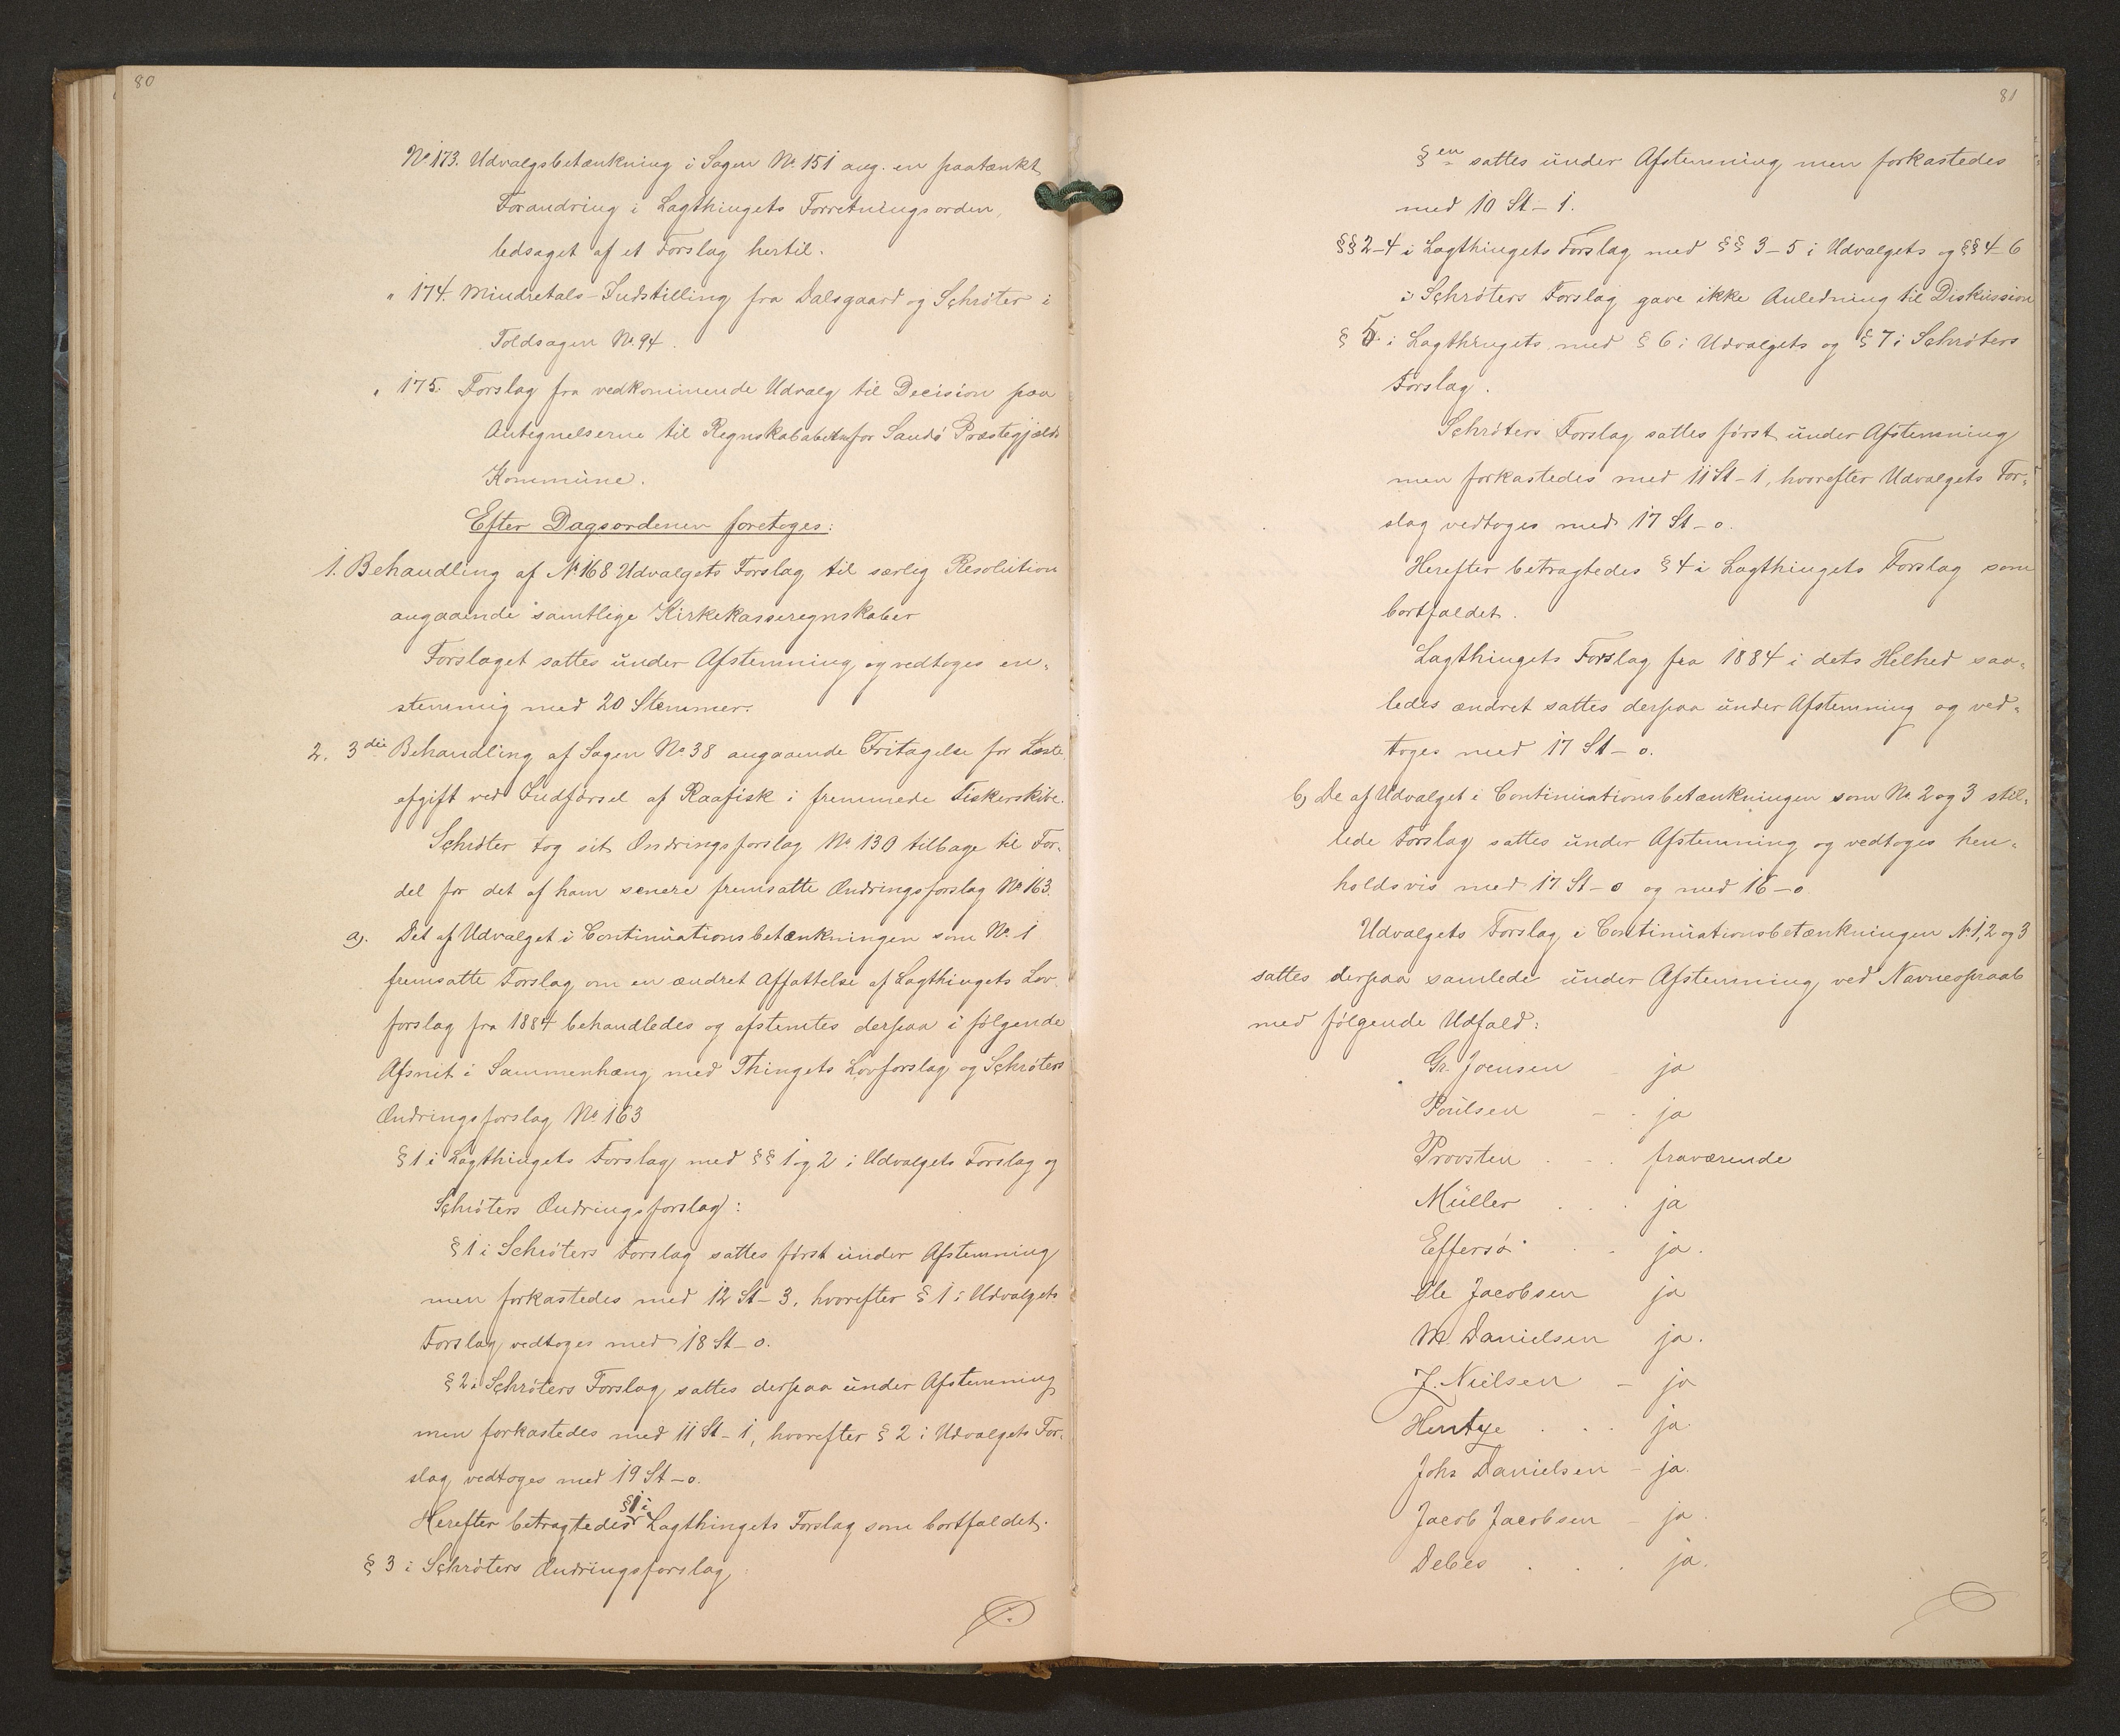 80
No 173. Udvalgsbetænkning i Sagen No. 151 ang. en paatænkt
Forandring i Lagthingets Forretningsorden,
ledsaget af et Forslag hertil.
" 174. Mindretals-Indstilling fra Dalsgaard og Schrøter i
Toldsagen No. 94.
" 175. Forslag fra vedkommende Udvalg til Decision paa
Antegnelserne til Regnskabet for Sandø Præstegjælds
Kommune.
Efter Dagsordenen foretoges:
1. Behandling af No 168 Udvalgets Forslag til særlig Resolution
angaaende samtlige Kirkekasseregnskaber
Forslaget sattes under Afstemning og vedtoges en-
stemmig med 20 Stemmer.
2. 3die Behandling af Sagen No 38 angaaende Fritagelse for Laste-
afgift ved Indførsel af Raafisk i fremmede Fiskerskibe.
Schrøter tog sit Ændringsforslag No. 130 tilbage til For-
del for det af ham senere fremsatte Ændringsforslag No 163.
a). Det af Udvalget i Continuationsbetænkningen som No. 1
fremsatte Forslag om en ændret Affattelse af Lagthingets Lov-
forslag fra 1884 behandledes og afstemtes derpaa i følgende
Afsnit i Sammenhæng med Thingets Lovforslag og Schrøters
Ændringsforslag No 163
§ 1 i Lagthingets Forslag med §§ 1 og 2 i Udvalgets Forslag og
Schrøters Ændringsforslag:
§ 1 i Schrøters Forslag sattes først under Afstemning
men forkastedes med 12 St - 3, hvorefter § 1 i Udvalgets
Forslag vedtoges med 18 St - 0.
§ 2 i Schrøters Forslag sattes derpaa under Afstemning
men forkastedes med 11 St - 1, hvorefter § 2 i Udvalgets For-
slag vedtoges med 19 St - 0.
Herefter betragtedes § 1 i Lagthingets Forslag som bortfaldet.
§ 3 i Schrøters Ændringsforslag:
81
§en sattes under Afstemning men forkastedes
med 10 St - 1.
§§ 2-4 i Lagthingets Forslag med §§ 3-5 i Udvalgets og §§ 4-6
i Schrøters Forslag gave ikke Anledning til Diskussion
§ 5. i Lagthingets med § 6 i Udvalgets og § 7 i Schrøters
Forslag.
Schrøters Forslag sattes først under Afstemning
men forkastedes med 11 St - 1, hvorefter Udvalgets For-
slag vedtoges med 17 St - 0.
Herefter betragtedes § 4 i Lagthingets Forslag som
bortfaldet.
Lagthingets Forslag fra 1884 i dets Helhed saa-
ledes ændret sattes derpaa under Afstemning og ved-
toges med 17 St - 0.
b) De af Udvalget i Continuationsbetænkningen som No. 2 og 3 stil-
lede Forslag sattes under Afstemning og vedtoges hen-
holdsvis med 17 St - 0 og med 16 - 0
Udvalgets Forslag i Continuationsbetænkningen No 1, 2 og 3
sattes derpaa samlede under Afstemning ved Navneopraab
med følgende Udfald:
Gr. Joensen - ja
Poulsen - - ja
Provsten . - . fraværende
Müller . . . ja
Effersø . . ja.
Ole Jacobsen ja
M. Danielsen ja.
J. Nielsen - ja
Hentze . . . ja
Johs Danielsen - ja.
Jacob Jacobsen - ja.
Debes . . . ja.